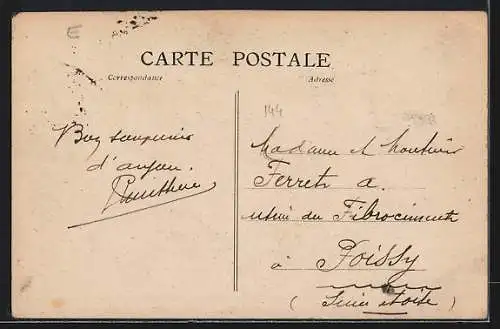 E
CARTE POSTALE
Correspondance
Adresse
144
Bon souvenir
d'anjou.
Madame et Monsieur
Ferret a.
usine du Fibrociment
à Poissy
(Seine et oise)